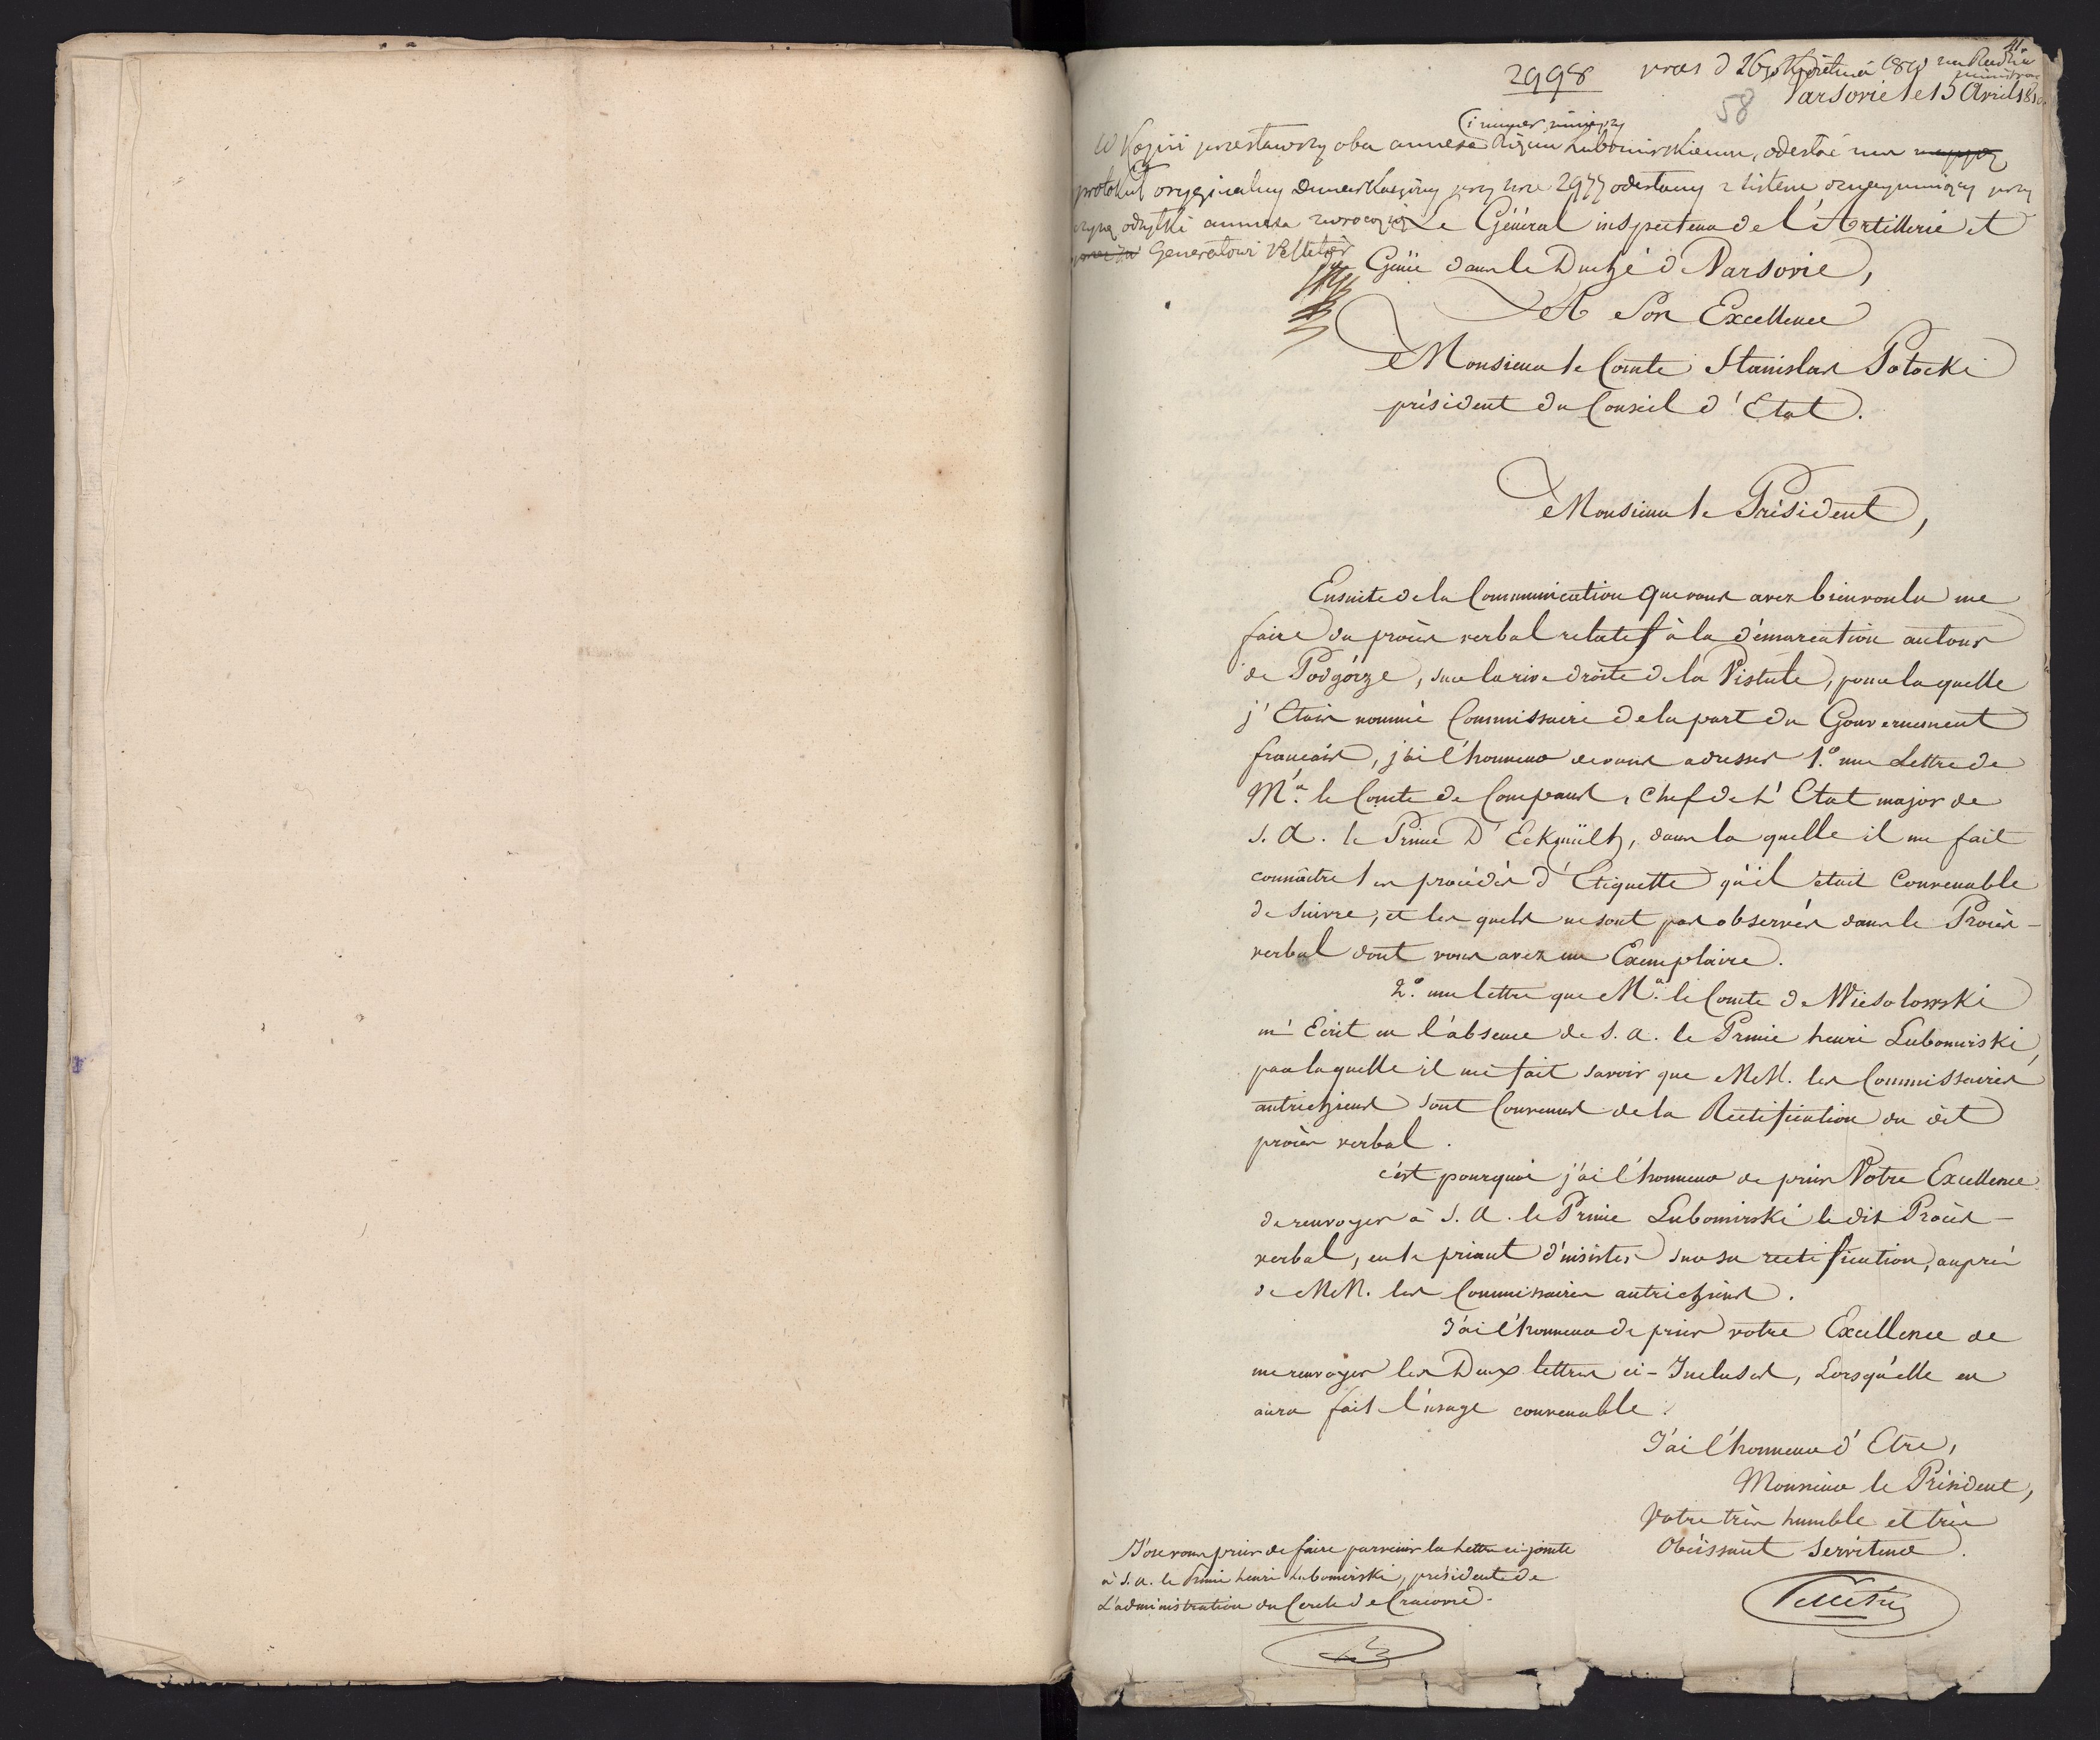 41.
2998 pres d 26 Kwietnia 1810 na Radzie
58 Varsovie le 15 Avril 1810.
(i numer niniejszy
W Kopii przesławszy oba annexa Xięciu Lubomirskiemu, odesłać mu
protokuł oryginalny demarkacyiny przy nrze 2977 odesłany z listem oznaymuiący przy
czynę odsyłki annexa zwrocą się
Generałowi Pelletier
Le Général inspecteur de l'Artillerie et
Génie dans le Duché de Varsovie,
A Son Excellence
Monsieur le Comte Stanislas Potocki
président du Conseil d'Etat.
Monsieur le Président,
Ensuite de la Communication que vous avez bien voulu me
faire du procès verbal relatif à la démarcation autour
de Podgórze, sur la rive droite de la Vistule, pour laquelle
j'Etais nommé Commissaire de la part du Gouvernement
français, j'ai l'honneur de vous adresser 1.° une Lettre de
M.r le Comte de Compans, Chef de L'Etat major de
S. A. le Prince D'Eckmülh, dans la quelle il me fait
connaître les procédés d'Etiquette qu'il était Convenable
de suivre, et les quels ne sont pas observés dans le Procès-
verbal dont vous avez un Exemplaire.
2.° une lettre que M.r le Comte de Wiesolowski
m'Ecrit en l'absence de S. A. le Prince henri Lubomirski,
par laquelle il me fait savoir que MM. les Commissaires
autrichiens sont Convenus de la Rectification du dit
procès verbal.
c'est pourquoi j'ai l'honneur de prier Votre Excellence
de renvoyer à S. A. le Prince Lubomirski le dit Procès-
verbal, en le priant d'insister sur sa rectification, auprès
de MM. les Commissaires autrichiens.
J'ai l'honneur de prier votre Excellence de
me renvoyer les Deux lettres ci-Incluses, Lorsqu'elle en
aura fait l'usage convenable.
J'ai l'honneur d'Etre,
Monsieur le Président,
Votre très humble et très
Obéissant Serviteur.
Pelletier
J'ose vous prier de faire parvenir la lettre ci-jointe
à S. A. le Prince henri Lubomirski, président de
L'administration du Cercle de Cracovie.